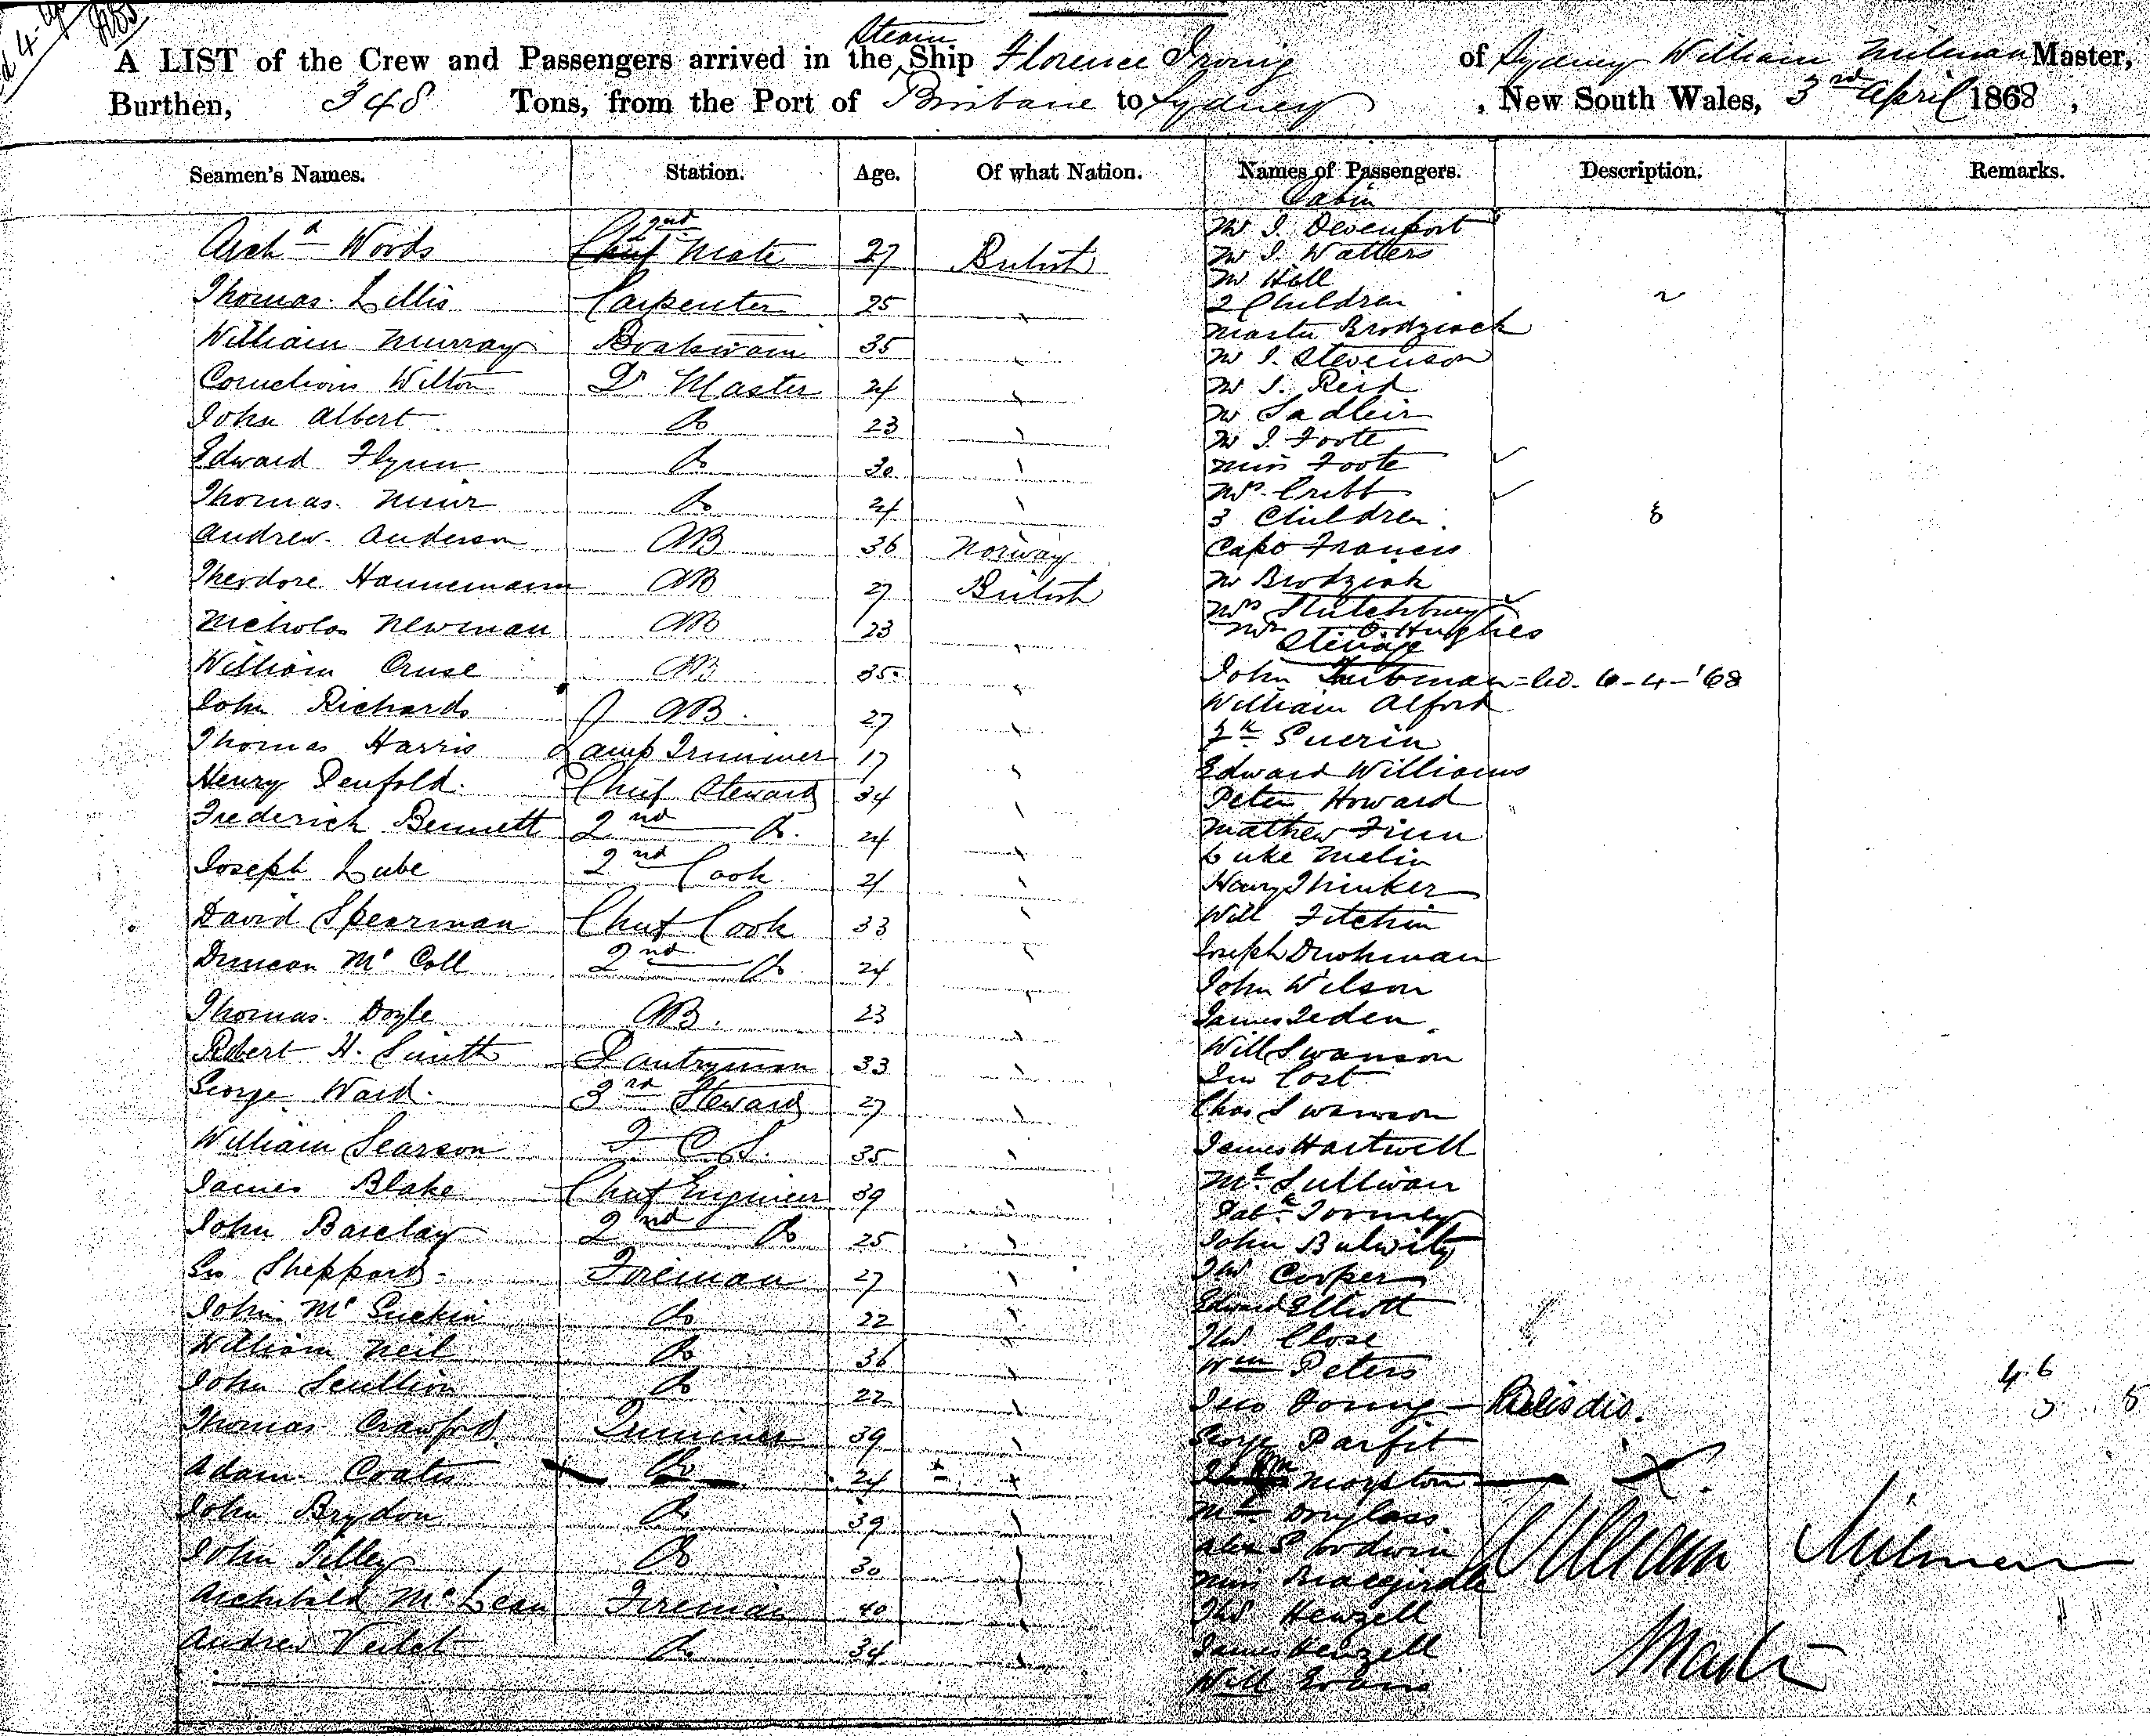 A LIST of the Crew and Passengers arrived in the Steam Ship Florence Irving of Sydney William Milman Master,
Burthen, 348 Tons, from the Port of Brisbane to Sydney, New South Wales, 3rd April 1868,
Seamen's Names. Station. Age. Of what Nation. Names of Passengers. Description. Remarks.
Archd Woods 2nd Mate 27 British
Thomas Lillis Carpenter 25
William Murray Boatswain 35
Cornelious Wilton Qr Master 24
John Albert Do 23
Edward Flynn Do 30
Thomas Muir Do 24
Andrew Anderson AB 36 Norway
Theodore Hannemann AB 27 British
Nicholas Newman AB 23
William Cruse AB 35
John Richards AB 27
Thomas Harris Lamp Trimmer 17
Henry Penfold Chief Steward 34
Frederick Bennett 2nd Do 24
Joseph Lube 2nd Cook 21
David Spearman Chief Cook 33
Duncan Mc Coll 2nd Do 24
Thomas Doyle AB. 23
Robert H. Smith Pantryman 33
George Ward 3rd Steward 27
William Searson F. C. S. 35
James Blake Chief Engineer 39
John Barclay 2nd Do 25
Geo Sheppard Fireman 27
John Mc Guckin Do 22
William Neil Do 36
John Scullion Do 22
Thomas Crawford Trimmer 39
Adam Coates Do 24
John Brydon Do 39
John Tilley Do 30
Archibald McLean Fireman 40
Andrew Do 34
Cabin
Mr J. Devenport
Mr J. Watters
Mr Hall
2 Children
Master Brodziack
Mr J. Stevenson
Mr J. Reid
Mr Sadleir
Mr J. Foote
Miss Foote
Mrs Cribb
3 Children 8
Capt Francis
Mr Brodziak
Mrs Stutchbury
Mr O. Hughes
Steerage
John 6-4-'68
William Alford
Guerin
Edward Williams
Peter Howard
Mathew Finn
Luke Melin
Henry Thinker
Will Fitchin
Joseph
John Wilson
James
Will Swanson
Jno Cost
Chas Swanson
James Hartwell
Ml Sullivan
Patk Tormey
John
Thos Cooper
Edward Elliott
Thos Close
Wm Peters
Jno Young
George Parfit
Wm Moyston
Douglass
Alex Goodwin
Miss Bracegirdle
Thos Hewzell
James Hewzell
Will Evans
46
William Milman
Master